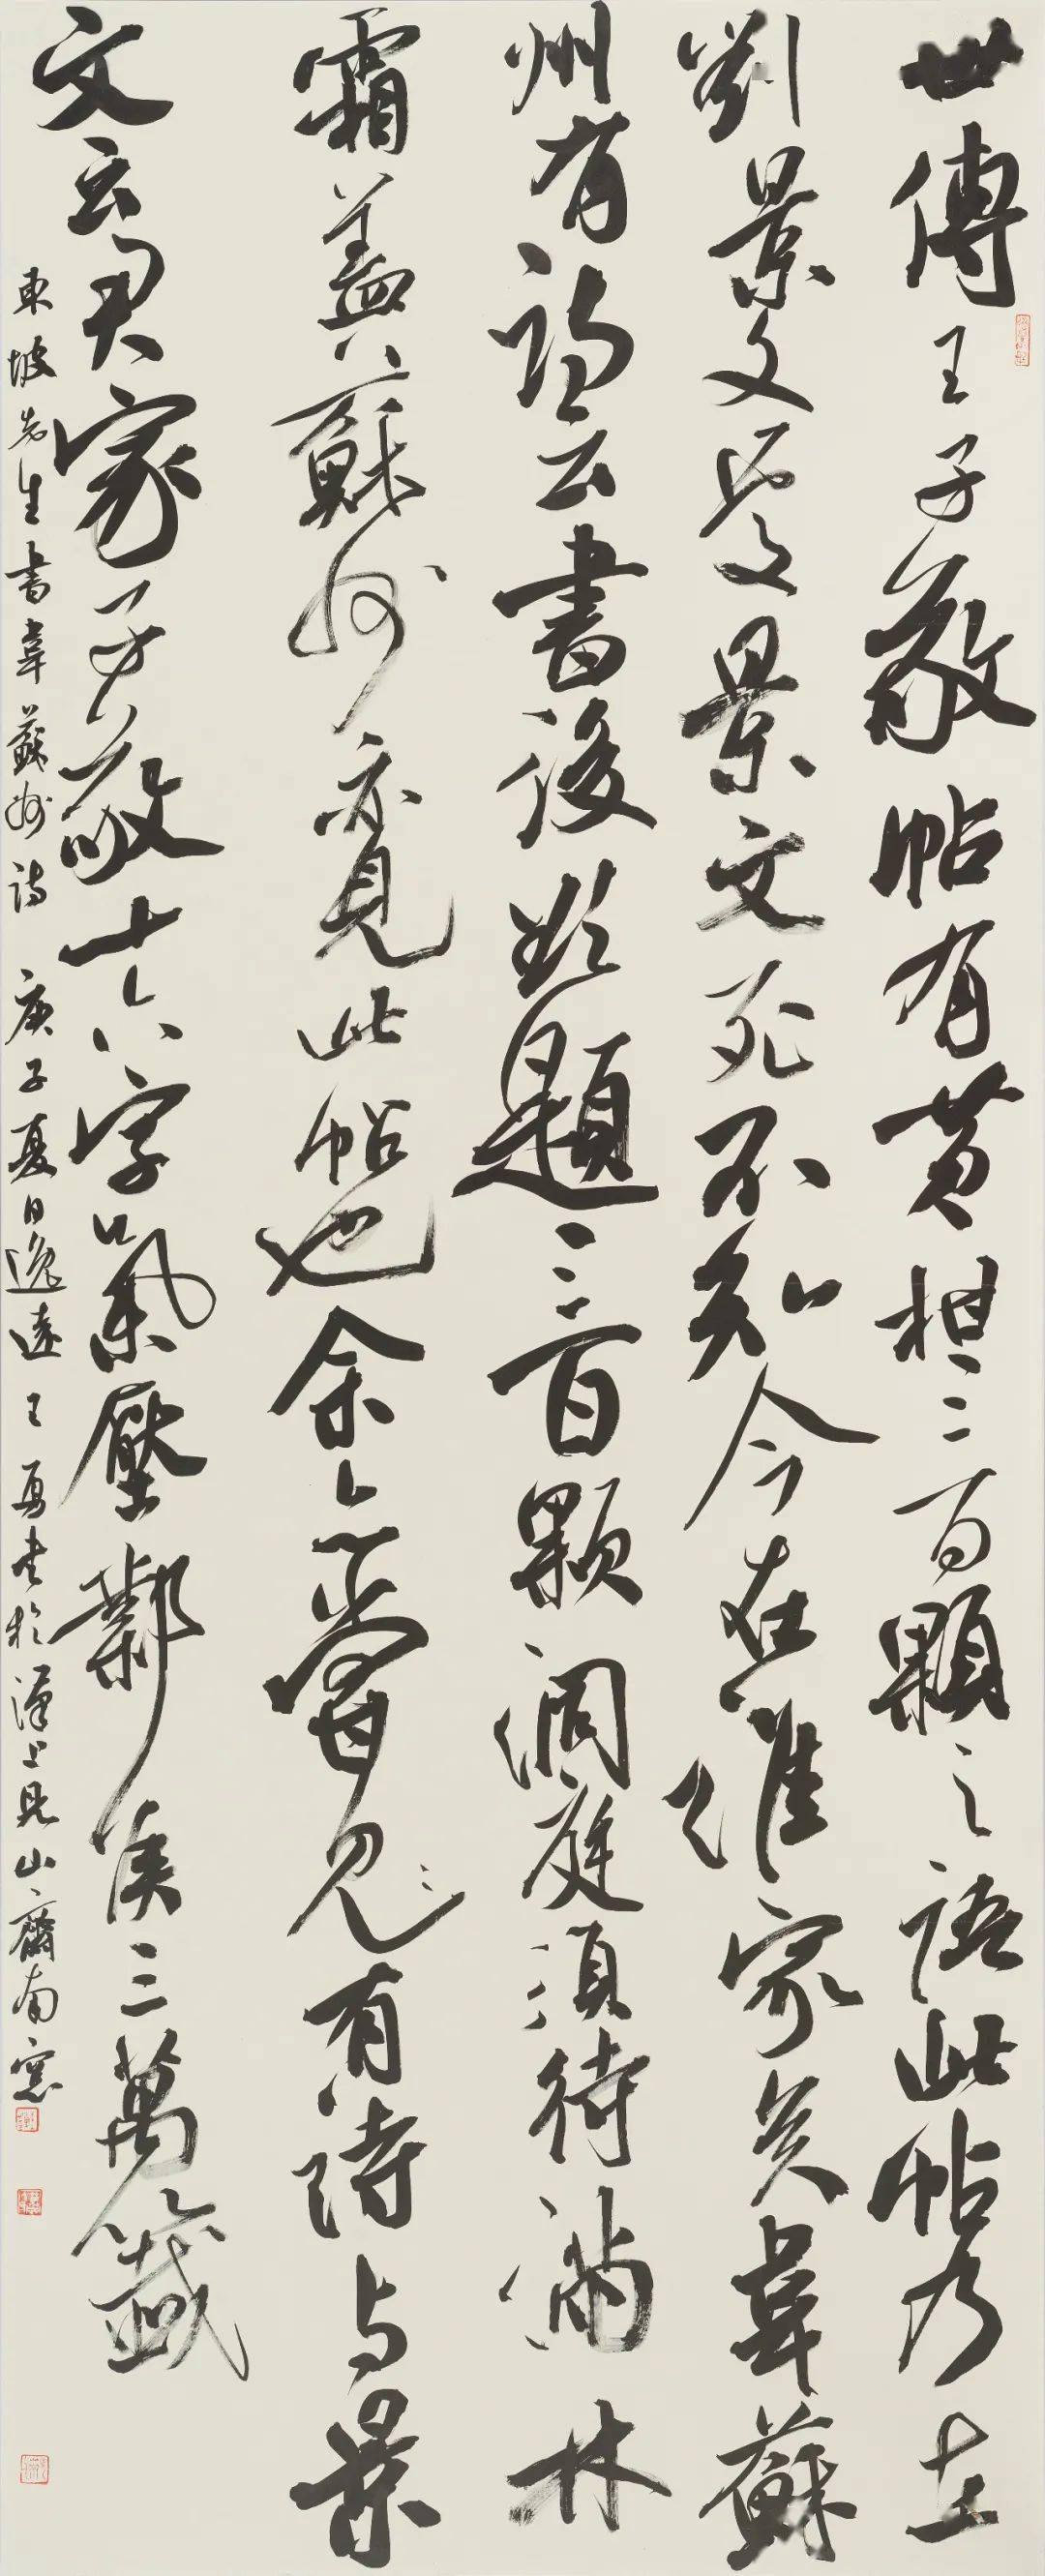 世傳王子敬帖有黄柑三百顆之語此帖乃在
劉景文處景文死不知今在誰家矣韋蘇
州有詩云書後欲題三百顆洞庭須待滿林
霜蓋蘇州亦見此帖也余亦嘗見之有詩与景
文云君家子敬十六字氣壓鄴侯三萬籤
東坡先生書韋蘇州詩 庚子夏日逸遠王勇书於漢上見山齋南窓